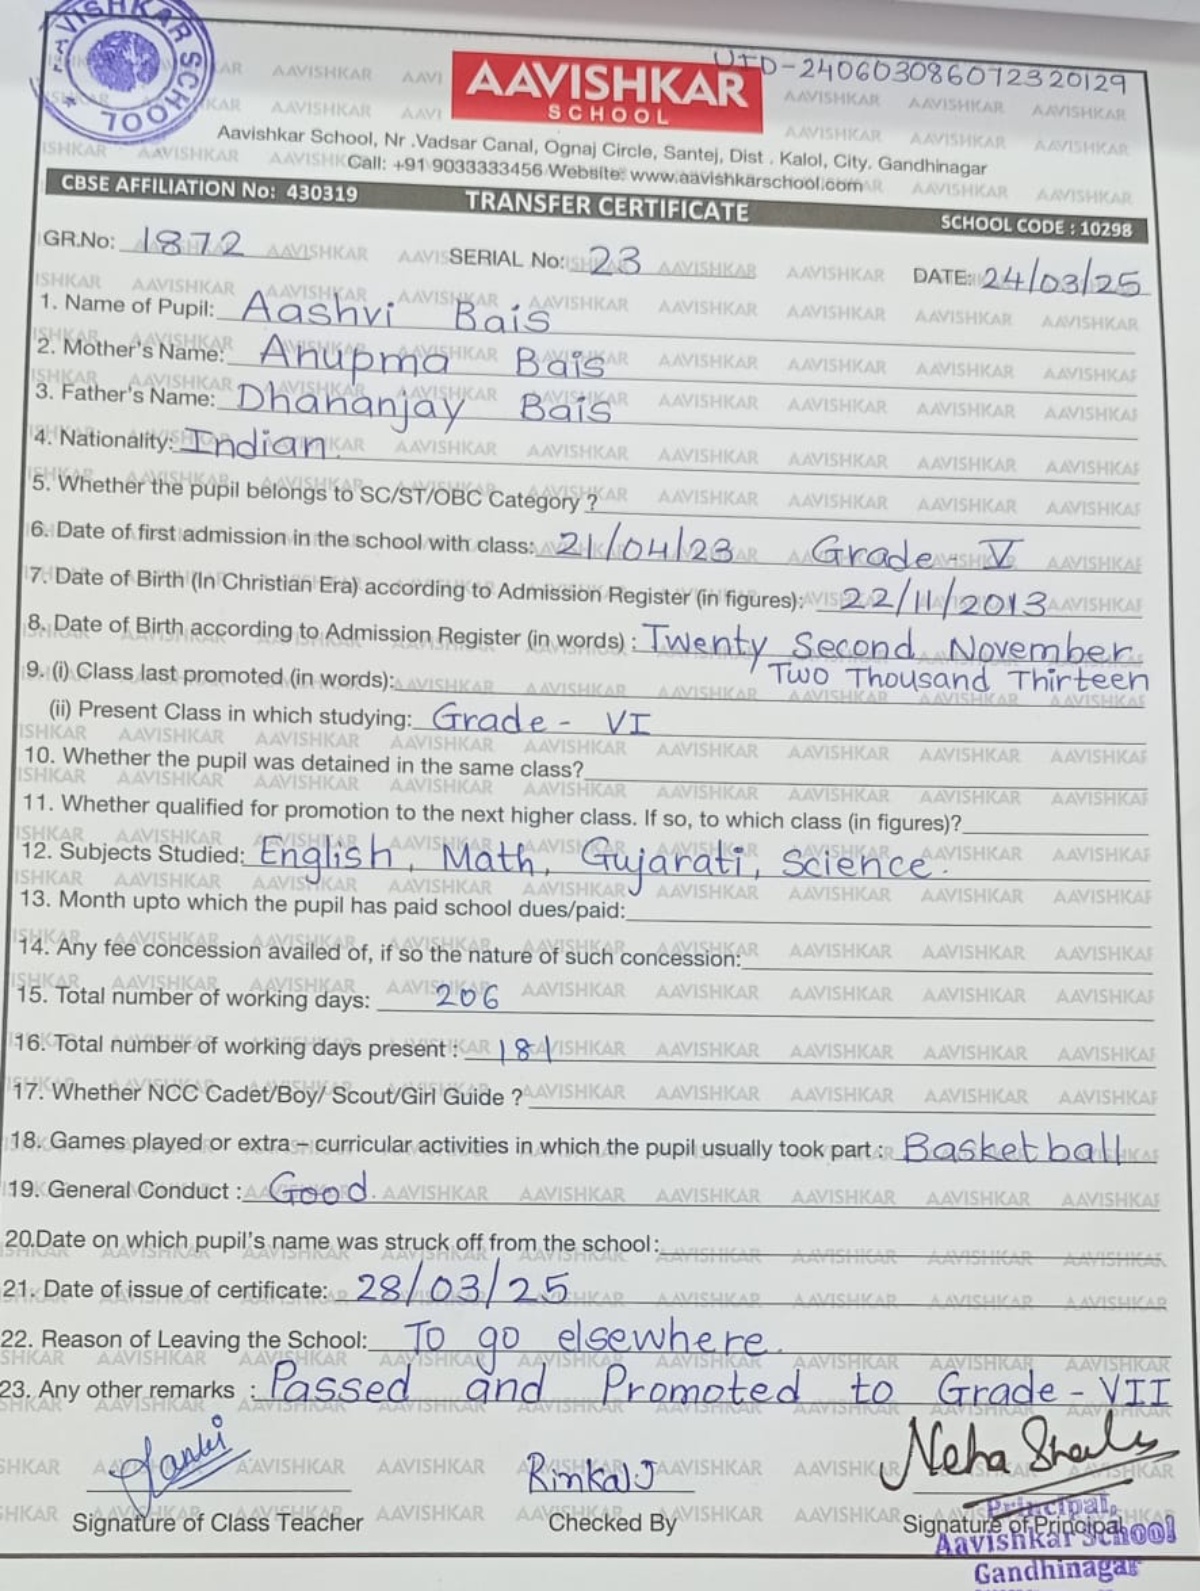 AAVISHKAR SCHOOL
UID-240603086072320129
AAVISHKAR
SCHOOL
Aavishkar School, Nr .Vadsar Canal, Ognaj Circle, Santej, Dist . Kalol, City. Gandhinagar
Call: +91 9033333456 Website: www.aavishkarschool.com
CBSE AFFILIATION No: 430319 TRANSFER CERTIFICATE SCHOOL CODE : 10298
GR.No: 1872 SERIAL No: 23 DATE: 24/03/25
1. Name of Pupil: Aashvi Bais
2. Mother's Name: Anupma Bais
3. Father's Name: Dhananjay Bais
4. Nationality: Indian.
5. Whether the pupil belongs to SC/ST/OBC Category ?
6. Date of first admission in the school with class: 21/04/23 Grade - V
7. Date of Birth (In Christian Era) according to Admission Register (in figures): 22/11/2013
8. Date of Birth according to Admission Register (in words) : Twenty Second November
Two Thousand Thirteen
9. (i) Class last promoted (in words):
(ii) Present Class in which studying: Grade - VI
10. Whether the pupil was detained in the same class?
11. Whether qualified for promotion to the next higher class. If so, to which class (in figures)?
12. Subjects Studied: English, Math, Gujarati, Science.
13. Month upto which the pupil has paid school dues/paid:
14. Any fee concession availed of, if so the nature of such concession:
15. Total number of working days: 206
16. Total number of working days present : 181
17. Whether NCC Cadet/Boy/ Scout/Girl Guide ?
18. Games played or extra – curricular activities in which the pupil usually took part : Basketball
19. General Conduct : Good.
20.Date on which pupil's name was struck off from the school:
21. Date of issue of certificate: 28/03/25
22. Reason of Leaving the School: To go elsewhere.
23. Any other remarks : Passed and Promoted to Grade - VII
Rinkal J Neha
Signature of Class Teacher Checked By Signature of Principal
Principal,
Aavishkar School
Gandhinagar